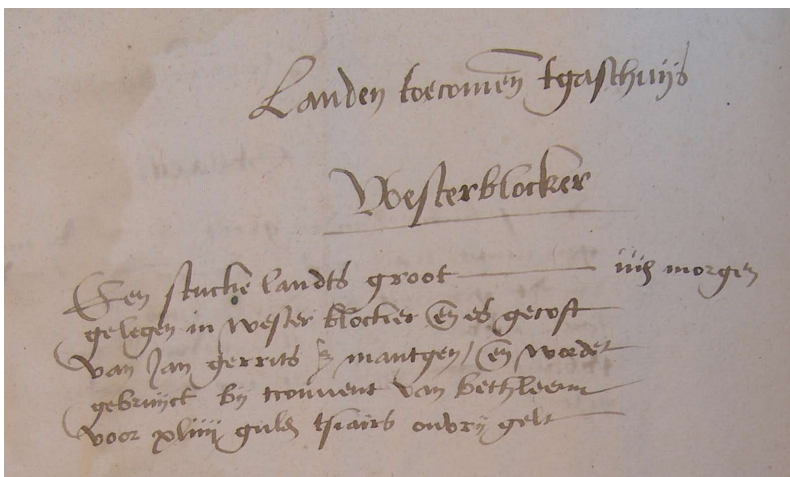 Landen toecomen tgasthuijs
Westerblocker
Een stucke landts groot morgen
gelegen in wester blocker en es gecoft
van Jan gerrits mantgen / en wordt
gebruijct bij tconvent van bethleem
voor xliiij guld tsiairs onvrij gelt